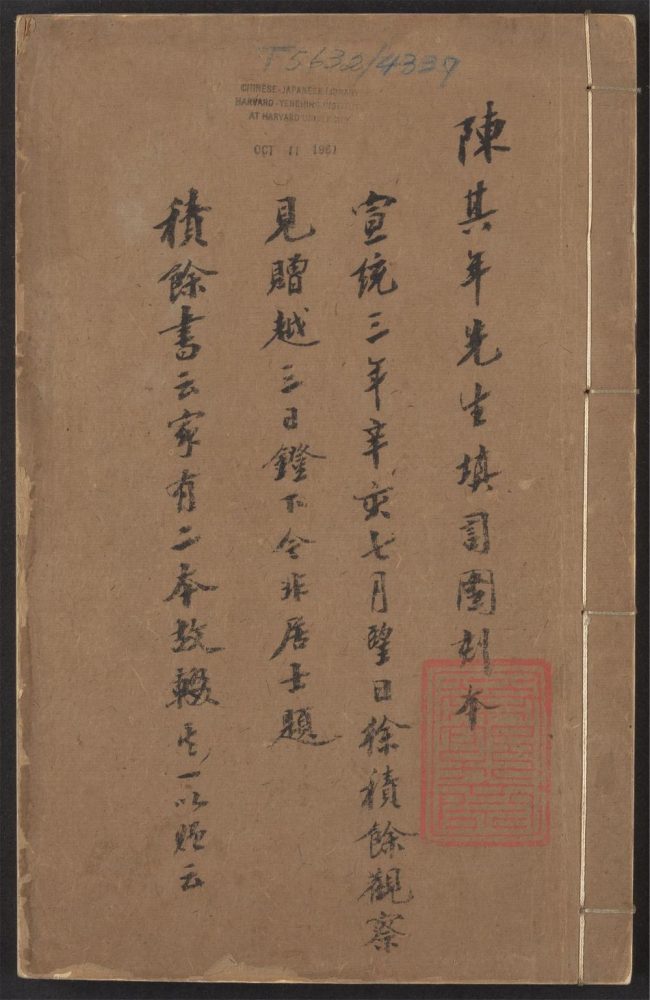 T5632/4339
CHINESE-JAPANESE LIBRARY
HARVARD-YENCHING INSTITUTE
AT HARVARD UNIVERSITY
OCT 11 1961
陳其年先生填詞圖刻本
宣統三年辛亥七月望日徐積餘觀察
見贈越三日鐙下令非居士題
積餘書云家有二本故輟其一以贈云